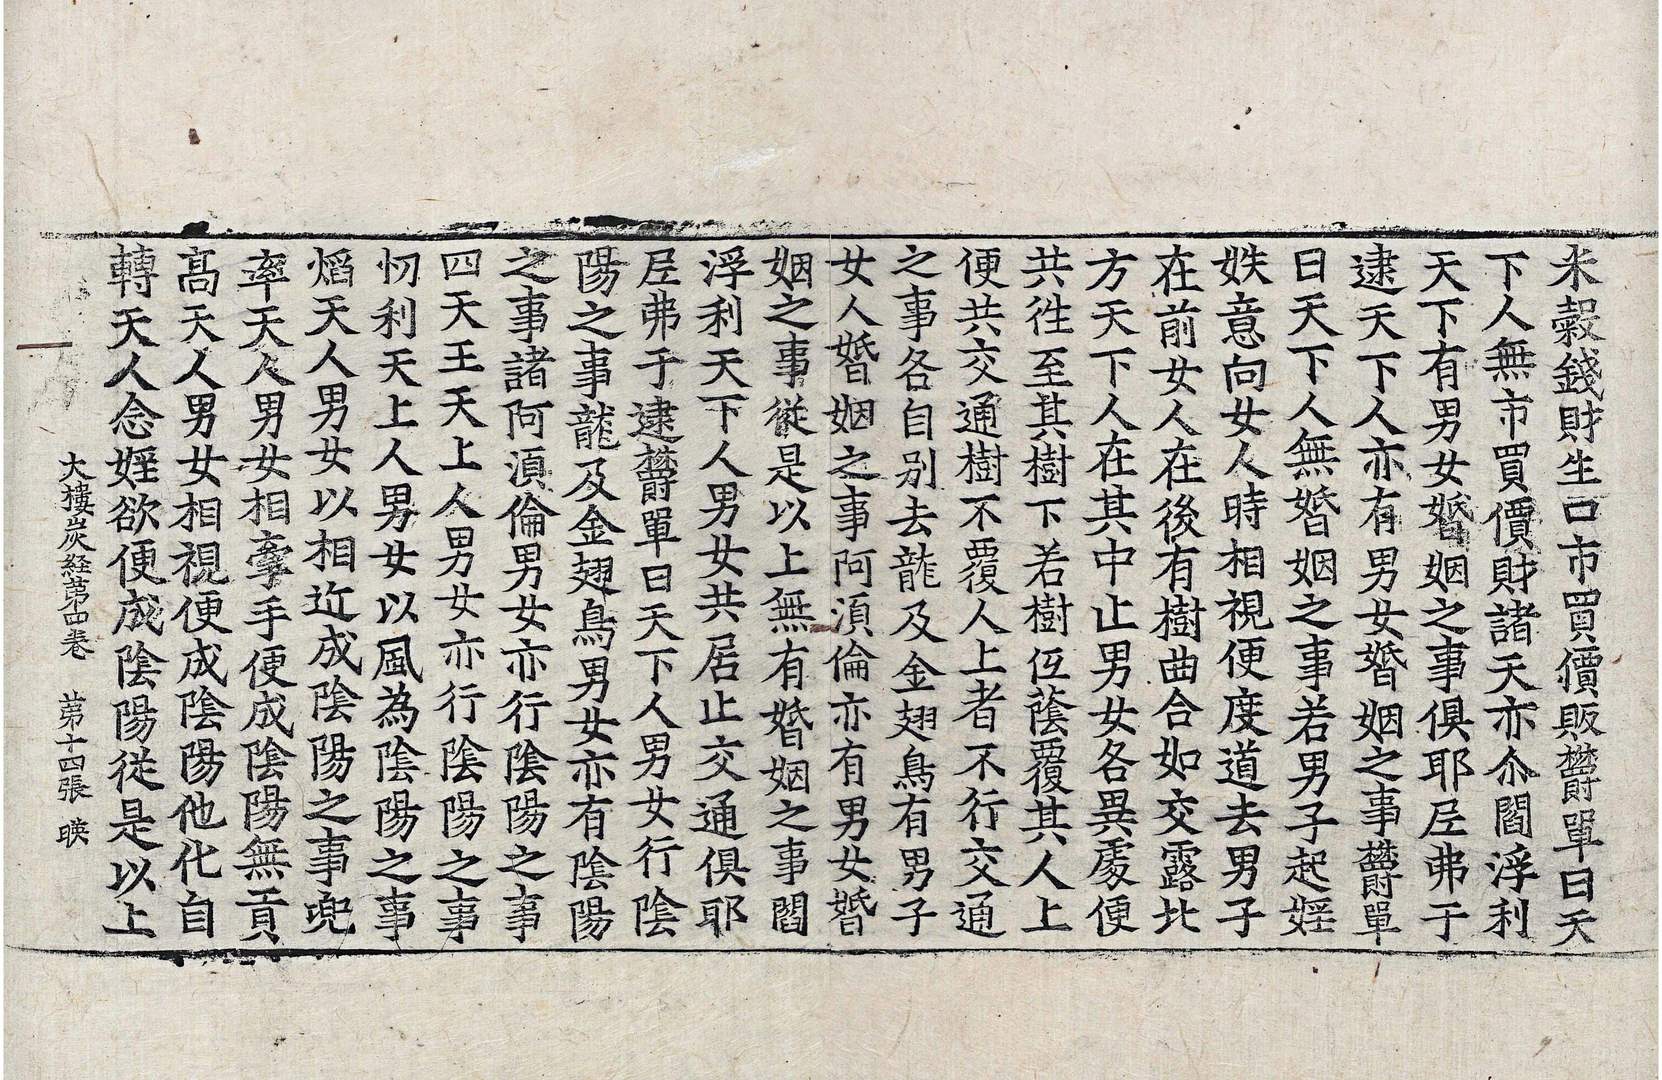 米穀錢財生口市買價販欝單曰天
下人無市買價財諸天亦尒閻浮利
天下有男女婚姻之事俱耶尼弗于
逮天下人亦有男女婚姻之事欝單
曰天下人無婚姻之事若男子起婬
妷意向女人時相視便度道去男子
在前女人在後有樹曲合如交露北
方天下人在其中止男女各異處便
共徃至其樹下若樹仾蔭覆其人上
便共交通樹不覆人上者不行交通
之事各自別去龍及金翅鳥有男子
女人婚姻之事阿湏倫亦有男女婚
姻之事從是以上無有婚姻之事閻
浮利天下人男女共居止交通俱耶
尼弗于逮欝單曰天下人男女行陰
陽之事龍及金翅鳥男女亦有陰陽
之事諸阿湏倫男女亦行陰陽之事
四天王天上人男女亦行陰陽之事
忉利天上人男女以風為陰陽之事
焰天人男女以相近成陰陽之事兜
率天人男女相牽手便成陰陽無貢
高天人男女相視便成陰陽他化自
轉天人念婬欲便成陰陽從是以上
大樓炭経苐四卷　苐十四張　暎